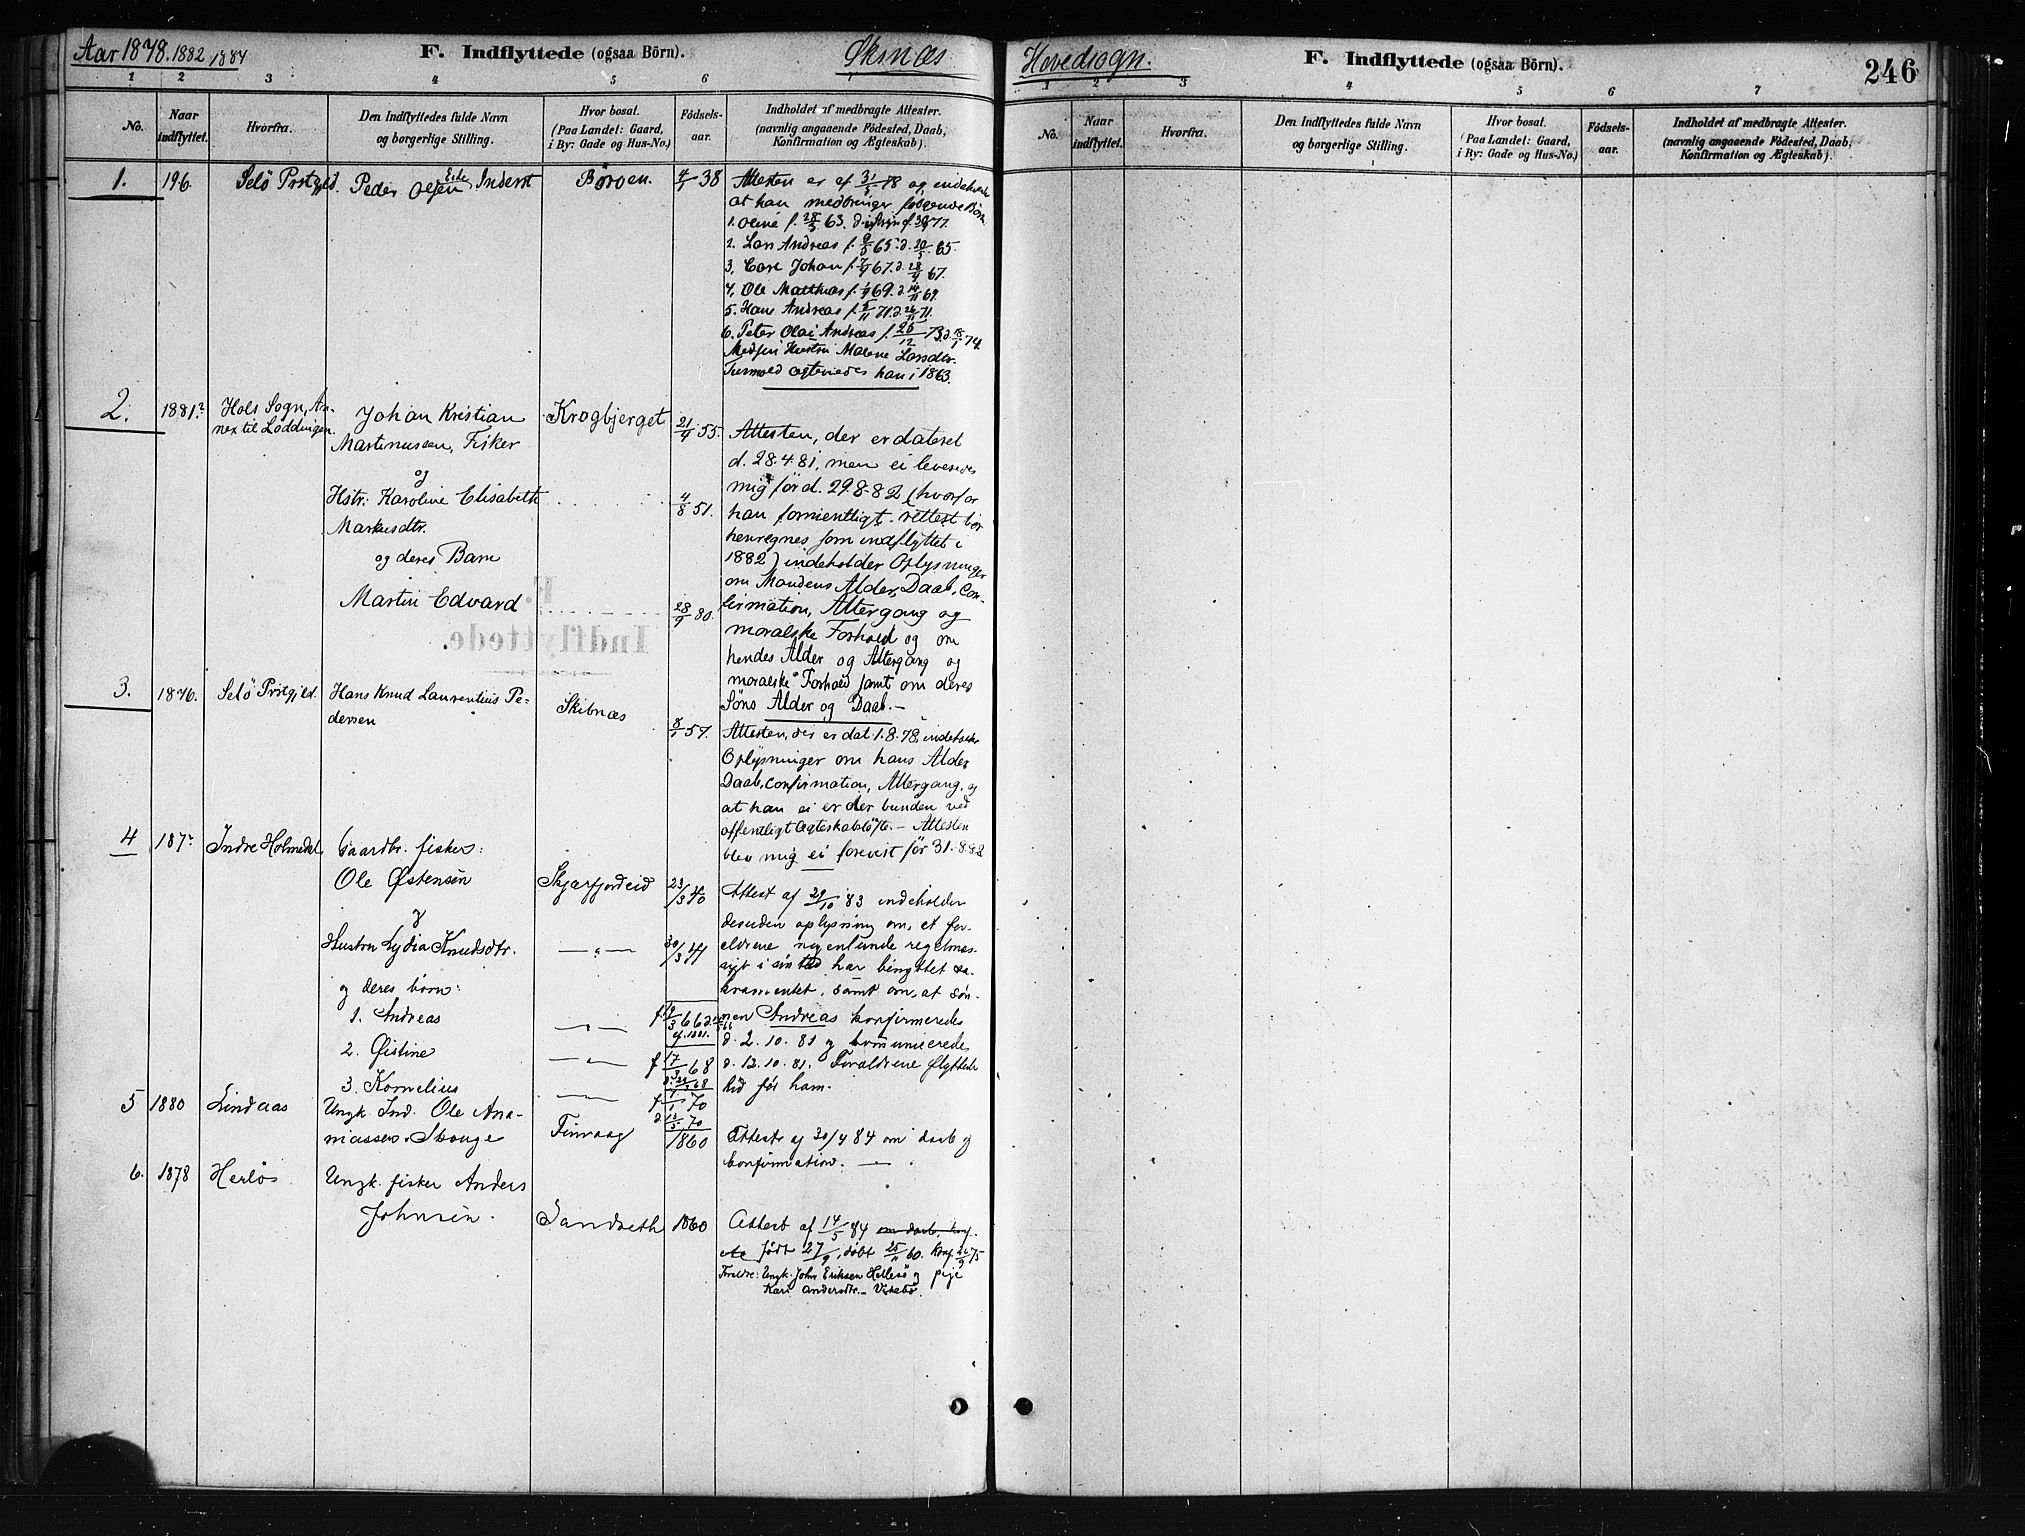 Aar 1878. 1882 1884
F. Indflyttede (ogsaa Börn).
Øksnæs
1 2 3 4 5 6
No.
Naar indflyttet.
Hvorfra.
Den Indflyttedes fulde Navn og borgerlige Stilling.
Hvor bosat. (Paa Landet: Gaard, i By: Gade og Hus-No.)
Födselsaar.
Indholdet af medbragte Attester. (navnlig angaaende Födested, Daab, Konfirmation og Ægteskab).
1. 196. Selö Prstgjld. Peder Olsen Eide Inderst Börøen. 4/1 38
Attesten er af 31/3 78 og indeholder
at han medbringer følgende Börn
2. Lars Andreas f. 9/3 65. d. 20/5 65.
3. Carl Johan f. 7/4 67. d. 28/4 67.
4. Ole Matthias f. 1/9 69. d. 14/11 69.
5. Hans Andreas f. 5/11 71. d. 26/11 71.
6. Peter Olai Andreas f. 26/12 73. d. 18/1 74.
Med sin Hustru Malene Larsdtr.
ægteviedes han i 1863.
2. 1881? Hols Sogn, An-
nex til Löddingen
Johan Kristian
Martinussen, Fisker
og
Hstr. Karoline Elisabeth
Markusdtr.
og deres Barn
Martin Edvard
Krogbjerget
21/9 55.
4/8 51.
28/9 80.
Attesten, der er dateret
d. 28.4.81, men ei leveredes
mig før d. 29.8.82 (hvorfor
han formentligt rettest bør
henregnes som indflyttet i
1882) indeholder Oplysninger
om Mandens Alder, Daab, Con-
firmation, Altergang og
moralske Forhold og om
hendes Alder og Altergang og
moralske Forhold samt om deres
Søns Alder og Daab.-
3. 1876. Selö Prstgjld. Hans Knud Laurentius Pe-
dersen
Skibnæs
8/1 57.
Attesten, der er dat 1.8.78, indeholder
Oplysninger om hans Alder
Daab, Confirmation, Altergang, og
at han ei er der bunden ved
offentligt Ægteskabsløfte.- Attesten
blev mig ei forevist før 31.8.82
4 187? Indre Holmedal Gaardbr. fisker:
Ole Østensen
Skjærfjordeid 23/3 40
og
Hustru Lydia Knudsdtr. 30/3 41
og deres børn:
1. Andreas
2. Østine
3. Kornelius
Attest af 29/10 83 indeholder
desuden oplysning om, at for-
ældrene nogenlunde regelmæs-
sigt i sin tid har benyttet sa-
kramentet, samt om, at søn-
nen Andreas konfirmeredes
d. 2.10.81 og kommunicerede
d. 12.10.81. Forældrene flyttede
hid før ham.
5 1880 Lindaas Ungk. Ind. Ole Ana-
niassen Skouge
Finvaag 1860
Attest af 30/4 84 om daab og
konfirmation.
6. 1878 Herlø Ungk. fisker Anders
Johnsen.
Sandseth 1860
Attest af 14/5 84 om daab, konf.
etc født 27/9, døbt 25/11 60. konf. 26/9 75
Foreldre: Ungk. John Eriksen Hellesö og pige
Kari Andersdtr.
F.
Indflyttede.
Hovedsogn.
F. Indflyttede (ogsaa Börn).
246
1 2 3 4 5 6 7
No.
Naar indflyttet.
Hvorfra.
Den Indflyttedes fulde Navn og borgerlige Stilling.
Hvor bosat. (Paa Landet: Gaard, i By: Gade og Hus-No.)
Födselsaar.
Indholdet af medbragte Attester. (navnlig angaaende Födested, Daab, Konfirmation og Ægteskab).